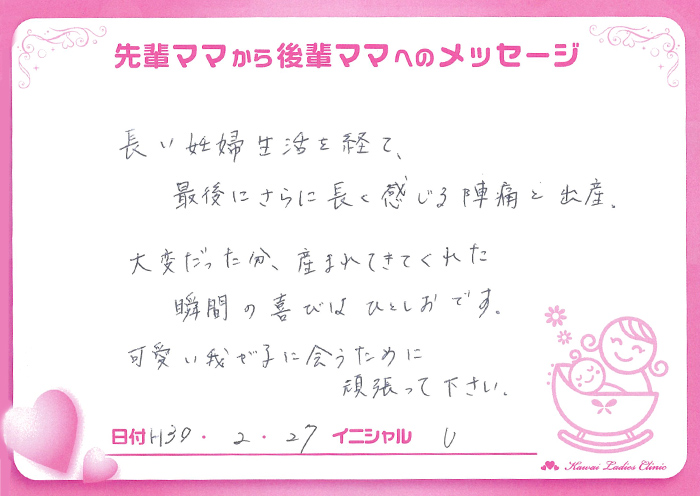 先輩ママから後輩ママへのメッセージ
長い妊婦生活を経て、
最後にさらに長く感じる陣痛と出産。
大変だった分、産まれてきてくれた
瞬間の喜びはひとしおです。
可愛い我が子に会うために
頑張って下さい。
日付 H30・2・27 イニシャル U
Kawai Ladies Clinic